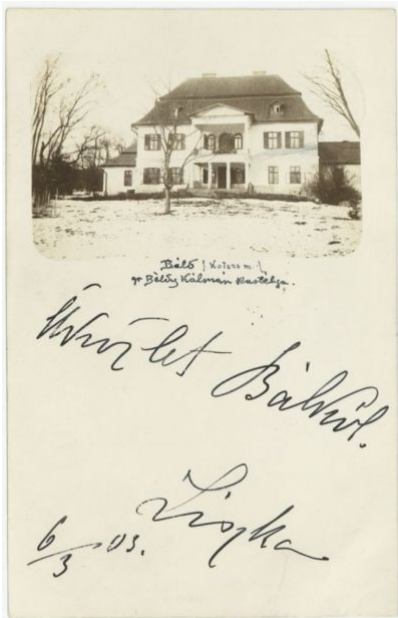 Báló (Kolozs m.)
gr Béldy Kálmán kastélya.
Üdvözlet Bálról.
Liszka
6/3 03.